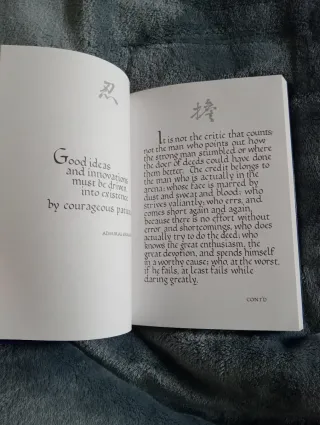 忍
Good ideas
and innovations
must be driven
into existence
by courageous
擔
It is not the critic that counts;
not the man who points out how
the strong man stumbled or where
the doer of deeds could have done
them better. The credit belongs to
the man who is actually in the
arena; whose face is marred by
dust and sweat and blood; who
strives valiantly; who errs, and
comes short again and again,
because there is no effort without
error and shortcomings, who does
actually try to do the deed; who
knows the great enthusiasm, the
great devotion, and spends himself
in a worthy cause; who, at the worst,
if he fails, at least fails while
daring greatly.
CONT'D.